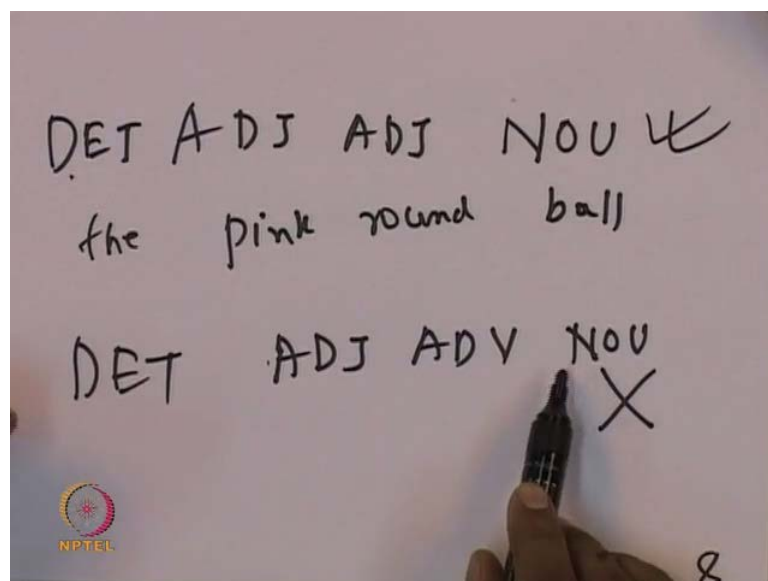 DET ADJ ADJ NOU
the pink round ball
DET ADJ ADV NOU
X
NPTEL
8